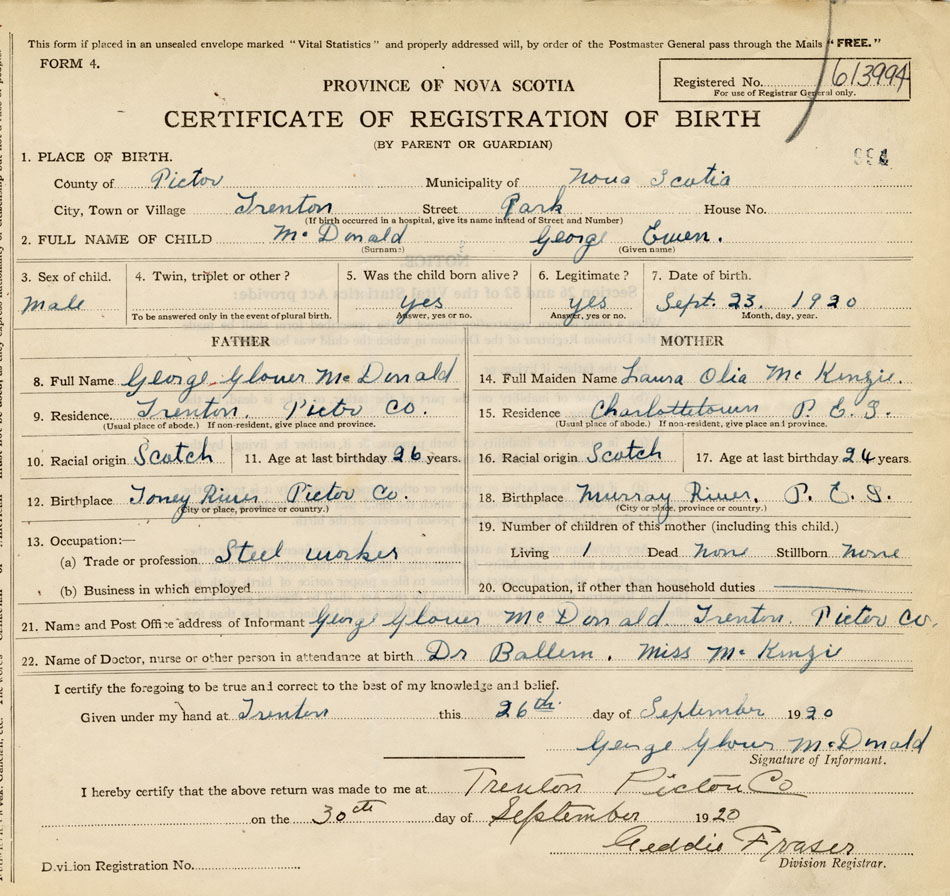 This form if placed in an unsealed envelope marked "Vital Statistics" and properly addressed will, by order of the Postmaster General pass through the Mails "FREE."
FORM 4.
Registered No. 613994
For use of Registrar General only.
PROVINCE OF NOVA SCOTIA
CERTIFICATE OF REGISTRATION OF BIRTH
(BY PARENT OR GUARDIAN)
994
1. PLACE OF BIRTH.
County of Pictou Municipality of Nova Scotia
City, Town or Village Trenton Street Park House No.
(If birth occurred in a hospital, give its name instead of Street and Number)
2. FULL NAME OF CHILD McDonald George Ewen.
(Surname) (Given name)
3. Sex of child. 4. Twin, triplet or other? 5. Was the child born alive? 6. Legitimate? 7. Date of birth.
Male yes yes Sept. 23. 1920
To be answered only in the event of plural birth. Answer, yes or no. Answer, yes or no. Month, day, year.
FATHER MOTHER
8. Full Name George Glover McDonald 14. Full Maiden Name Laura Olia McKinzie.
9. Residence. Trenton. Picto Co. 15. Residence Charlottetown P. E. I.
(Usual place of abode.) If non-resident, give place and province. (Usual place of abode.) If non-resident, give place and province.
10. Racial origin Scotch 11. Age at last birthday 26 years. 16. Racial origin Scotch 17. Age at last birthday 24 years.
12. Birthplace Toney River Pictor Co. 18. Birthplace Murray River, P. E. I.
(City or place, province or country.) (City or place, province or country.)
13. Occupation:— 19. Number of children of this mother (including this child.)
(a) Trade or profession Steel worker Living 1 Dead None Stillborn None
(b) Business in which employed 20. Occupation, if other than household duties
21. Name and Post Office address of Informant George Glover McDonald Trenton. Picter Co.
22. Name of Doctor, nurse or other person in attendance at birth Dr Ballem. Miss McKinzie
I certify the foregoing to be true and correct to the best of my knowledge and belief.
Given under my hand at Trenton this 26th. day of September 1920
George Glover McDonald
Signature of Informant.
I hereby certify that the above return was made to me at Trenton Pictou Co
on the 30th day of September 1920
Geddie Fraser
Division Registrar.
Division Registration No.